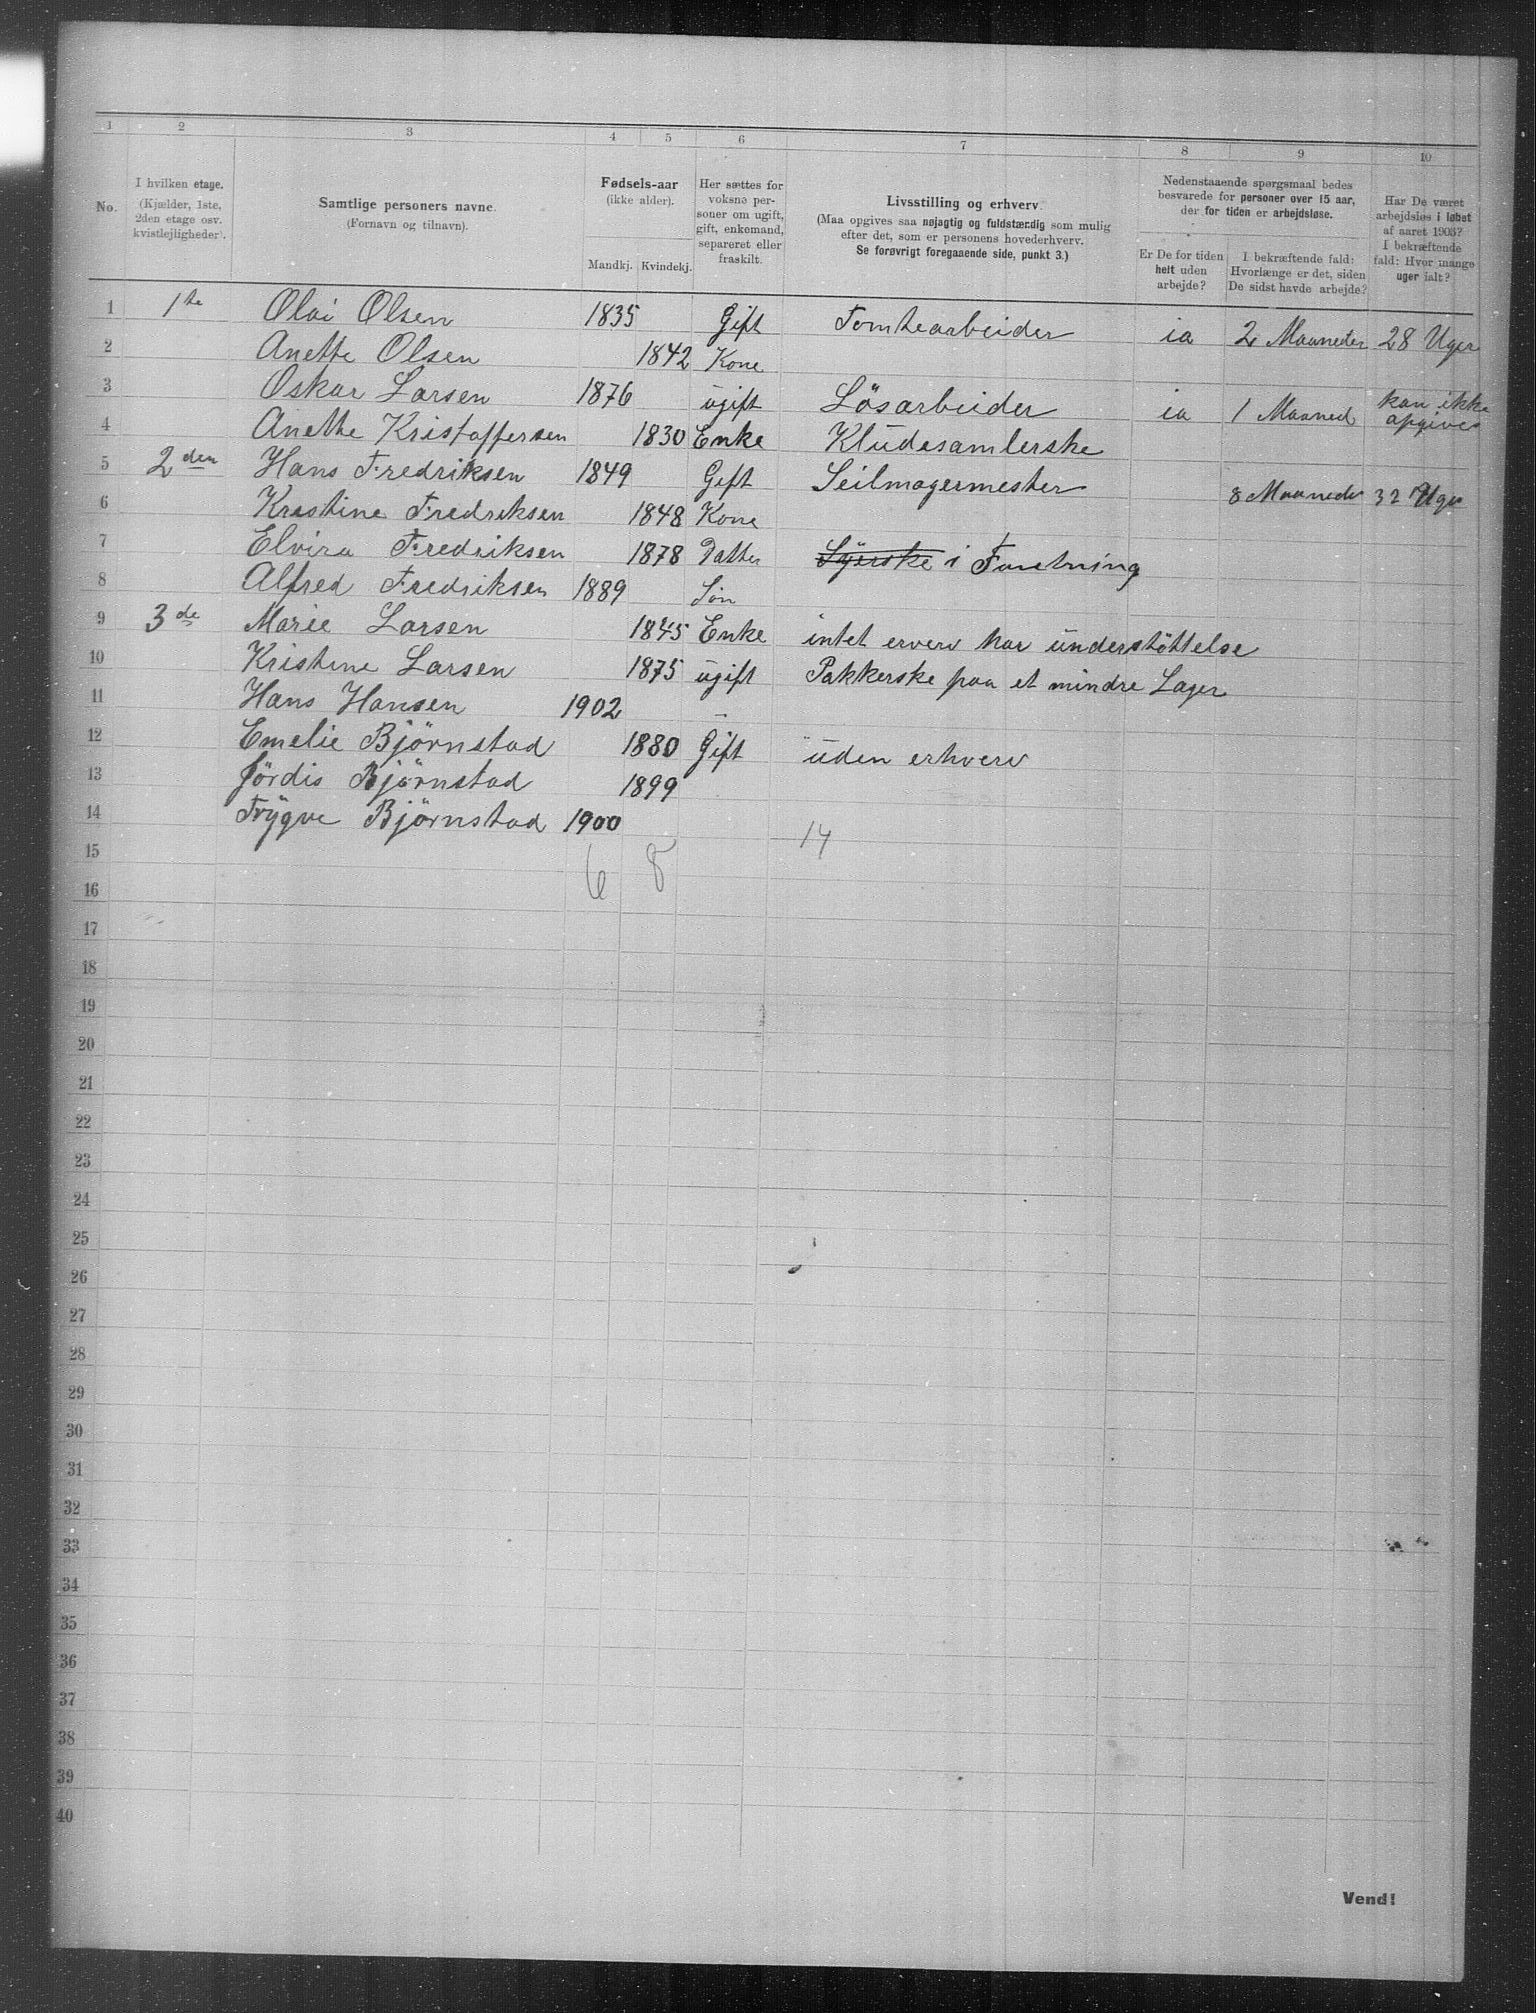 1 2 3 4 5 6 7 8 9 10
No.
I hvilken etage.
(Kjælder, 1ste,
2den etage osv.
kvistlejligheder).
Samtlige personers navne.
(Fornavn og tilnavn).
Fødsels-aar
(ikke alder).
Mandkj. Kvindekj.
Her sættes for
voksne per-
soner om ugift,
gift, enkemand,
separeret eller
fraskilt.
Livsstilling og erhverv.
(Maa opgives saa nøjagtig og fuldstændig som mulig
efter det, som er personens hovederhverv.
Se forøvrigt foregaaende side, punkt 3.)
Nedenstaaende spørgsmaal bedes
besvarede for personer over 15 aar,
der for tiden er arbejdsløse.
Er De for tiden
helt uden
arbejde?
I bekræftende fald:
Hvorlænge er det, siden
De sidst havde arbejde?
Har De været
arbejdsløs i løbet
af aaret 1903?
I bekræftende
fald: Hvor mange
uger ialt?
1 1te Olai Olsen 1835 Gift Tomtearbeider ia 2 Maaneder 28 Uger
2 Anette Olsen 1842 Kone
3 Oskar Larsen 1876 ugift Lösarbeider ia 1 Maaned kan ikke opgives
4 Anette Kristoffersen 1830 Enke Kludesamlerske
5 2den Hans Fredriksen 1849 Gift Seilmagermester 8 Maaneder 32 Uger
6 Kristine Fredriksen 1848 Kone
7 Elvira Fredriksen 1878 Datter Syerske i Foretning
8 Alfred Fredriksen 1889 Sön
9 3de Marie Larsen 1845 Enke intet erverv har understöttelse
10 Kristine Larsen 1875 ugift Pakkerske paa et mindre Lager
11 Hans Hansen 1902 –
12 Emelie Björnstad 1880 Gift uden erhverv
13 Jördis Björnstad 1899
14 Trygve Björnstad 1900
15 6 8 14
16
17
18
19
20
21
22
23
24
25
26
27
28
29
30
31
32
33
34
35
36
37
38
39
40
Vend!